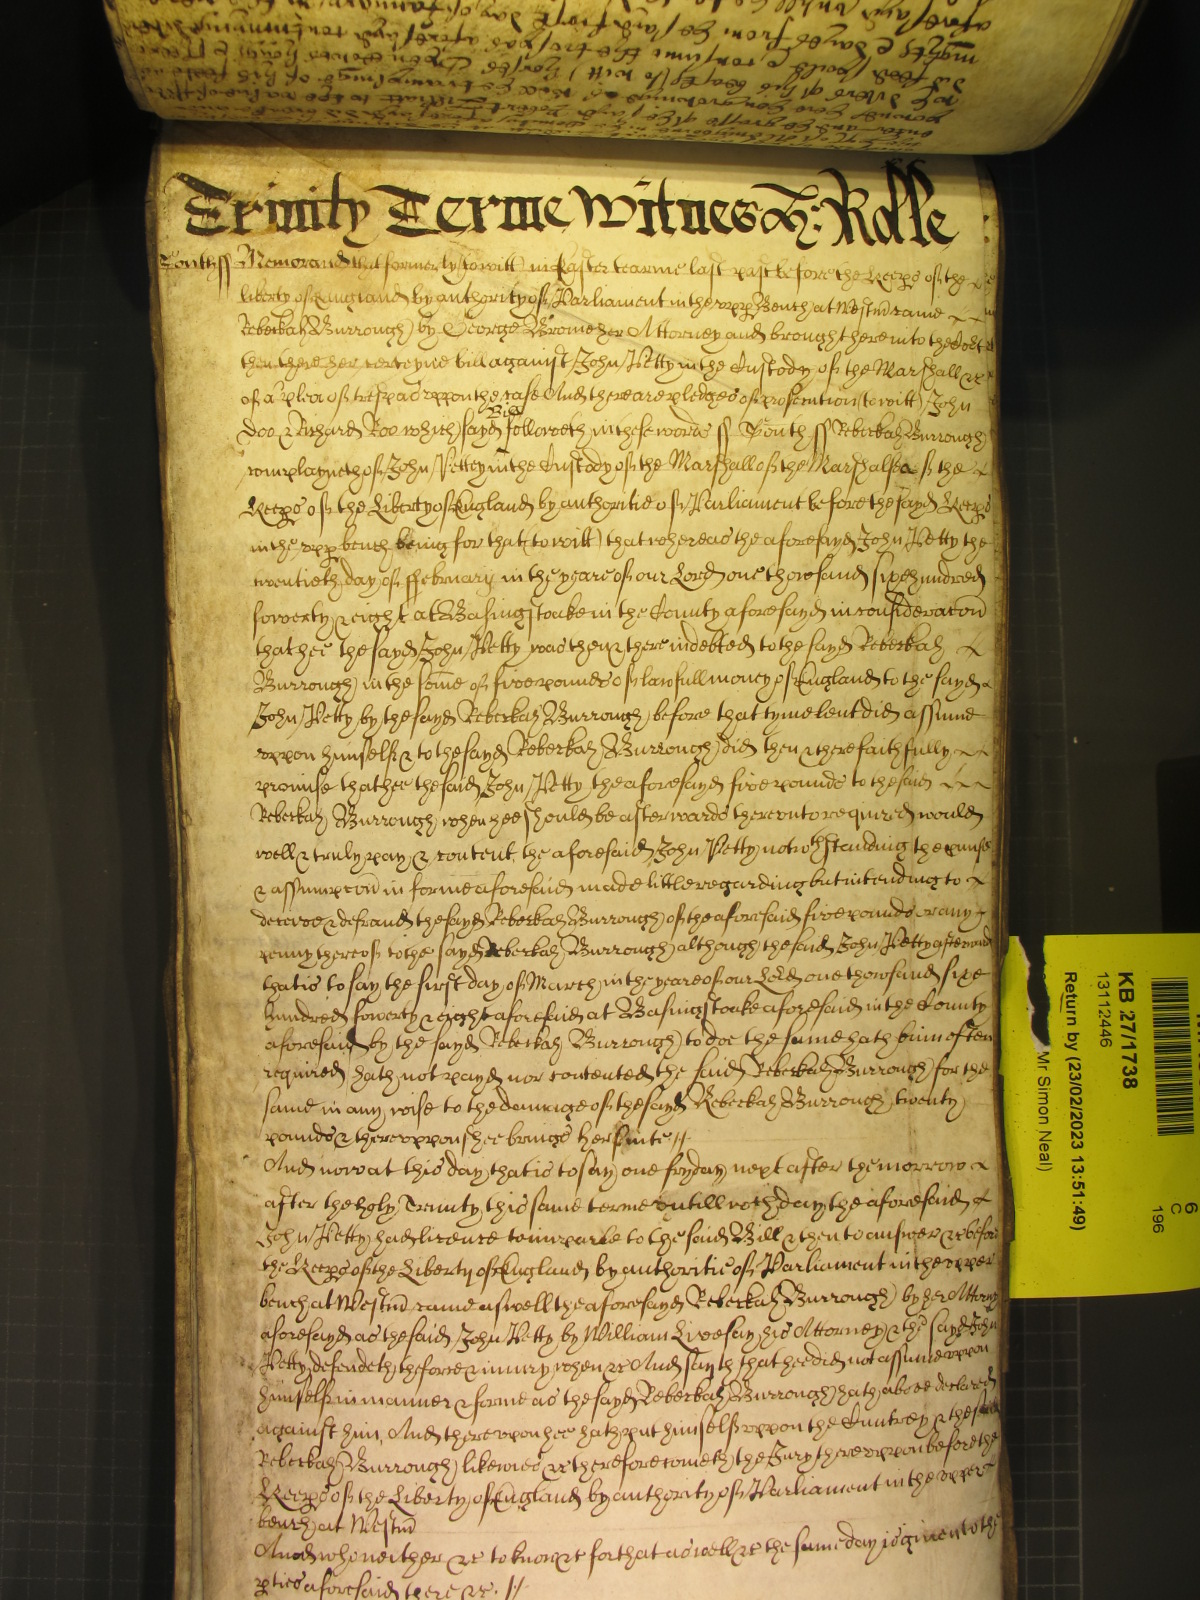 Trinity Terme Witnes &c: Rolle
South ss Memorand that formerly (to witt) in Easter tearme last past before the Keeps of the
liberty of England by authority of Parliament in the upp Bench at Westm came
Rebeckah Burrough by George Brome her Attorney and brought here into the Cort
then there her certeyne bill against John Petty in the Custody of the Marshall &c
of a plea of trespas uppon the case And there are pledges of prosecution (to witt) John
Doo & Richard Roo which sayd Bill followeth in these words ss South ss Rebeckah Burrough
complayneth of John Petty in the Custody of the Marshall of the Marshalsea of the
Keeps of the Liberty of England by authoritie of Parliament before the sayd Keeps
in the upp bench being for that (to witt) that whereas the aforesayd John Petty the
twentieth day of ffebruary in the yeare of our Lord one thowsand sixe hundred
fowerty & eight at Basingstoake in the County aforesayd in consideracon
that hee the sayd John Petty was then & there indebted to the sayd Rebeckah
Burrough in the some of five pounds of lawfull money of England to the sayd
John Petty by the sayd Rebeckah Burrough before that tyme lent did assume
uppon himself & to the sayd Rebeckah Burrough did then & there faithfully
promise that hee the said John Petty the aforesayd five pounds to the said
Rebeckah Burrough when hee should be afterwards thereunto required would
well & truly pay & content the aforesaid John Petty notwthstanding the pmise
& assumpcon in forme aforesaid made little regarding but intending to
deceive & defraud the sayd Rebeckah Burrough of the aforesaid five pounds or any
penny thereof to the sayd Rebeckah Burrough although the said John Petty afterwards
that is to say the first day of March in the yeare of our Lord one thowsand sixe
hundred fowerty & eight aforesaid at Basingstoake aforesaid in the County
aforesaid by the sayd Rebeckah Burrough to doe the same hath binn often
required hath not payd nor contented the said Rebeckah Burrough for the
same in any wise to the damage of the sayd Rebeckah Burrough twenty
pounds & thereuppon shee brings her suite //
And now at this day that is to say one fryday next after the morrow
after the holy Trinity this same terme untill wch day the aforesaid
John Petty had licence to imparle to the said Bill & then to answer &c before
the Keeps of the Liberty of England by authoritie of Parliament in the upper
bench at Westm came aswell the aforesayd Rebeckah Burrough by her Attorny
aforesayd as the said John Petty by William Livesay his Attorney & the sayd John
Petty defendeth the force & iniury when &c And sayth that hee did not assume uppon
himself in manner & forme as the sayd Rebeckah Burrough hath above declared
against him, And thereuppon hee hath put himself uppon the Cuntrey & the said
Rebeckah Burrough likewise &c therefore cometh the Jury thereuppon before the
Keeps of the Liberty of England by authority of Parliament in the upper
bench at Westm
And who neither &c to know &c for that aswell &c the same day is given to the
pties aforesaid there &c. //
KB 27/1738
13112446
Return by (23/02/2023 13:51:49)
Mr Simon Neal)
6
C
196